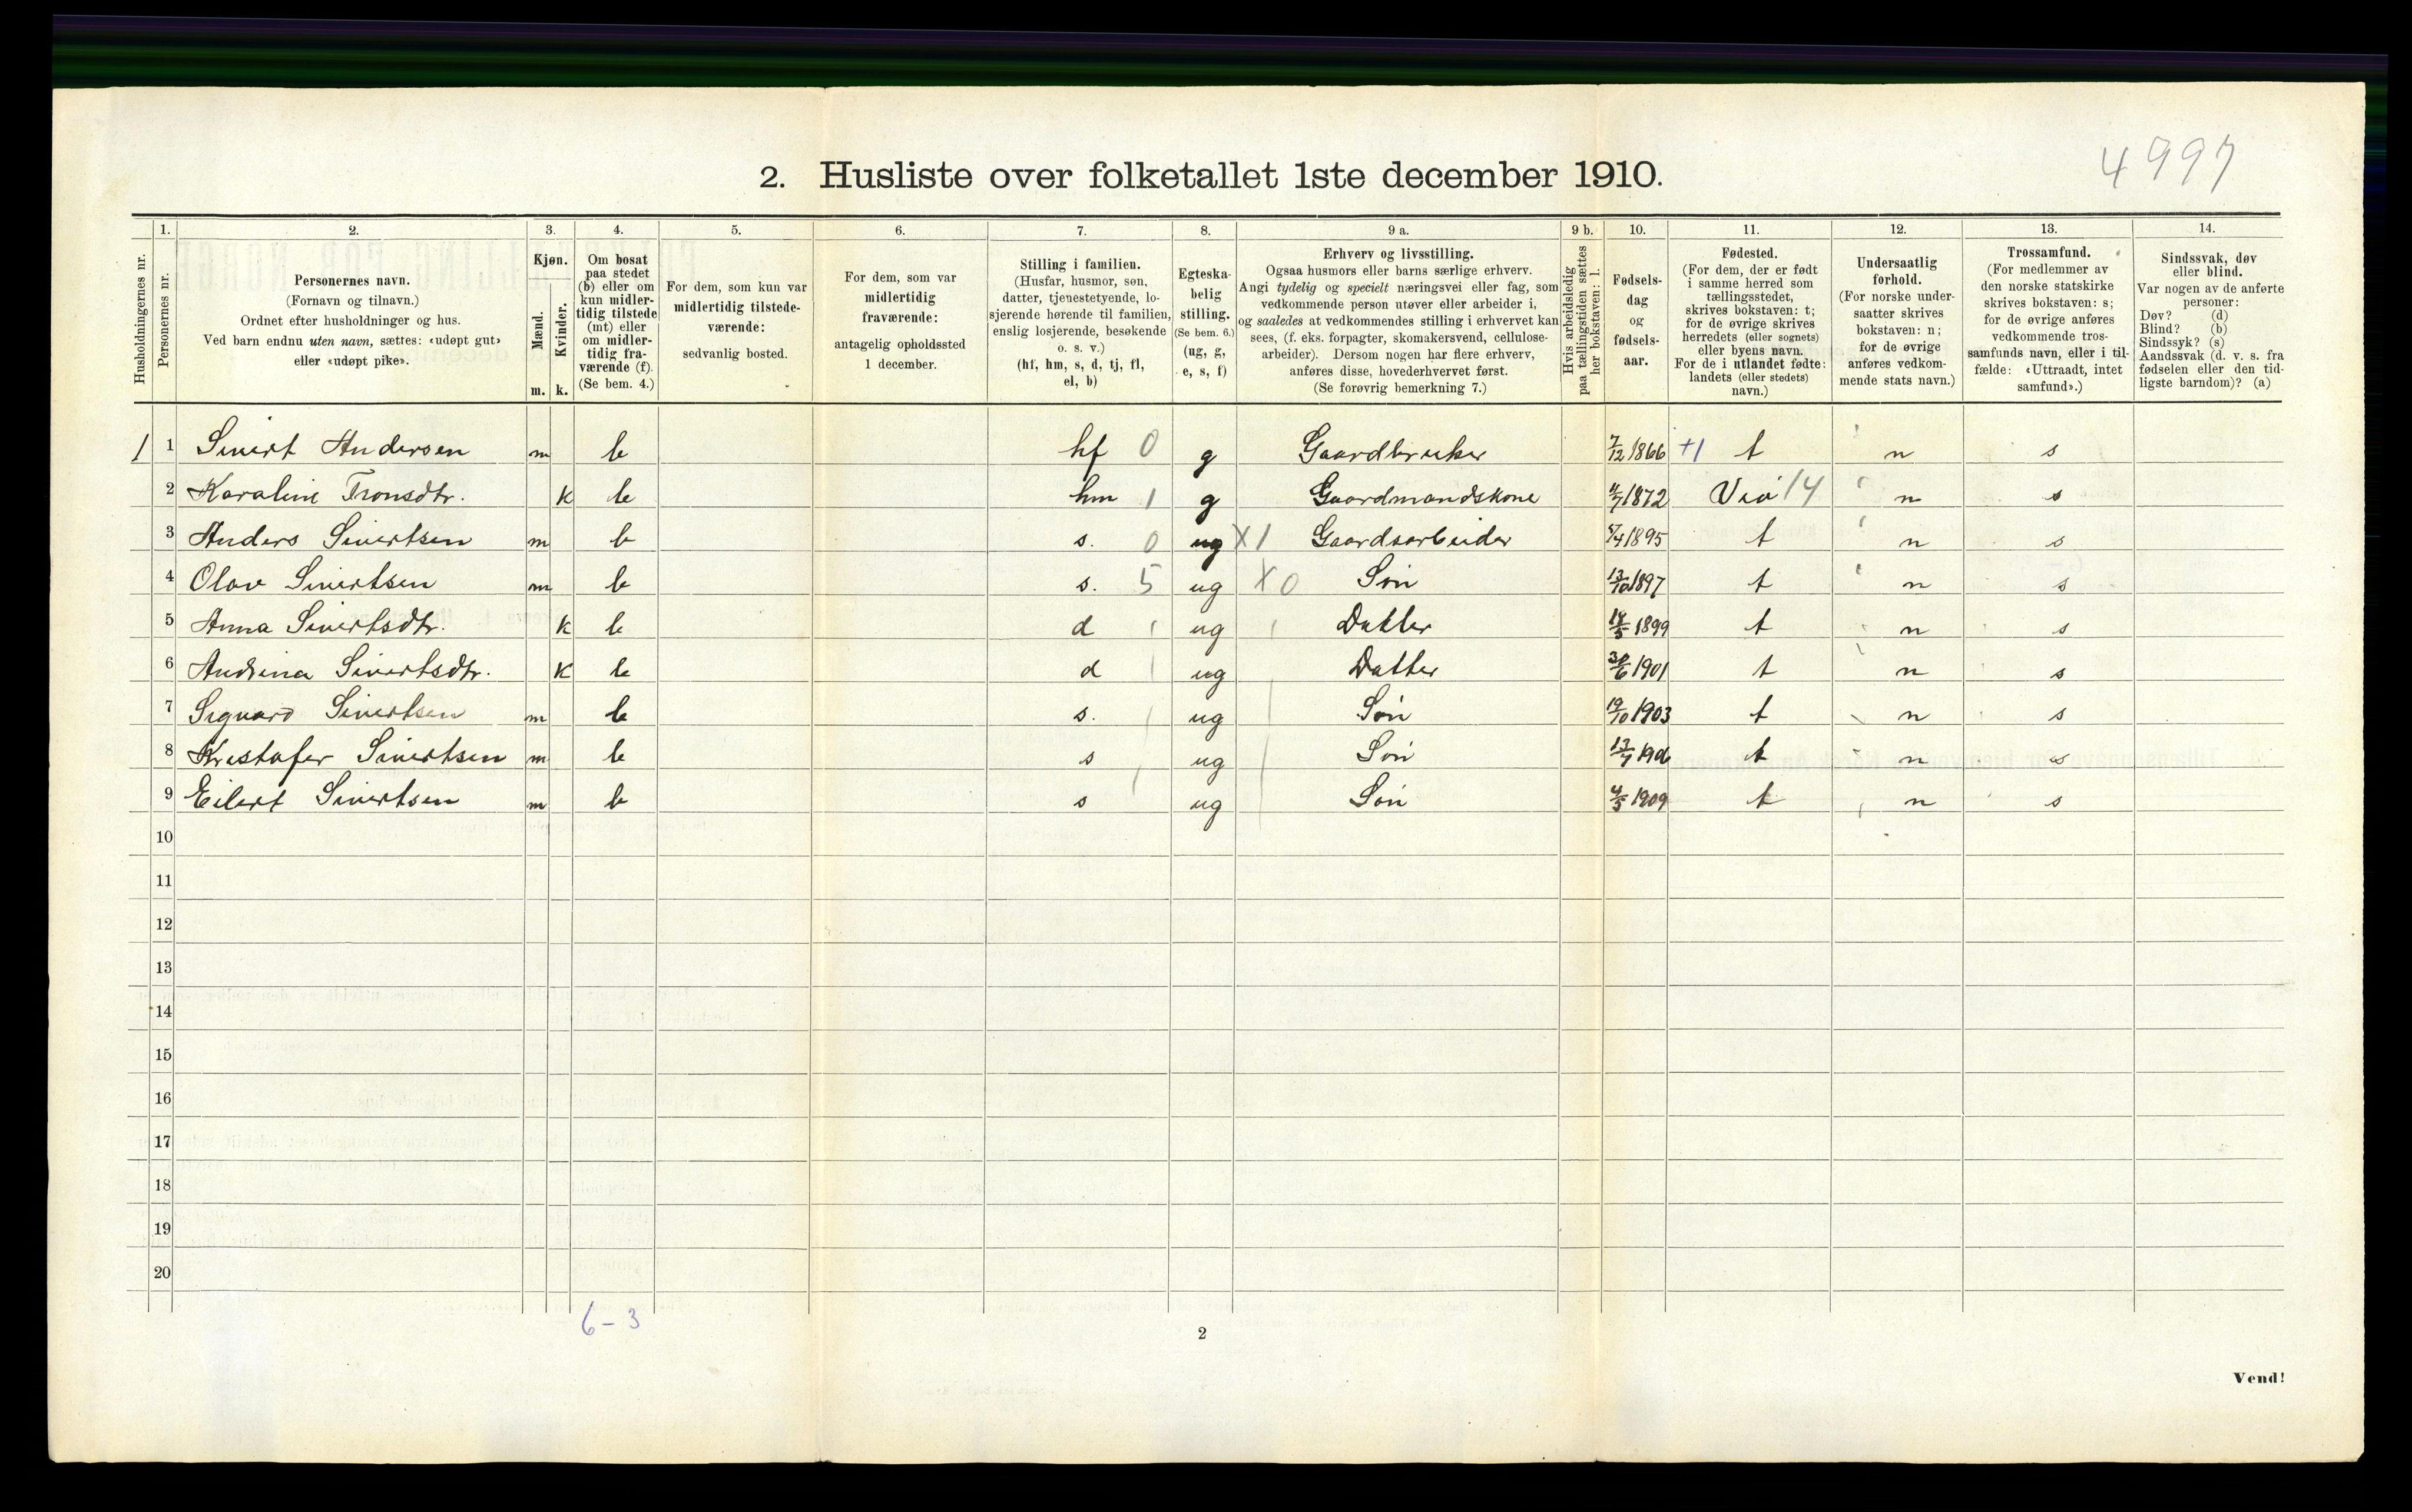 4997
2. Husliste over folketallet 1ste december 1910.
Husholdningernes nr.
1.
Personernes nr.
2.
Personernes navn.
(Fornavn og tilnavn.)
Ordnet efter husholdninger og hus.
Ved barn endnu uten navn, sættes: «udøpt gut»
eller «udøpt pike».
3.
Kjøn.
Mænd.
m.
Kvinder.
k.
4.
Om bosat
paa stedet
(b) eller om
kun midler-
tidig tilstede
(mt) eller
om midler-
tidig fra-
værende (f).
(Se bem. 4.)
5.
For dem, som kun var
midlertidig tilstede-
værende:
sedvanlig bosted.
6.
For dem, som var
midlertidig
fraværende:
antagelig opholdssted
1 december.
7.
Stilling i familien.
(Husfar, husmor, søn,
datter, tjenestetyende, lo-
sjerende hørende til familien,
enslig losjerende, besøkende
o. s. v.)
(hf, hm, s, d, tj, fl,
el, b)
8.
Egteska-
belig
stilling.
(Se bem. 6.)
(ug, g,
e, s, f)
9 a.
Erhverv og livsstilling.
Ogsaa husmors eller barns særlige erhverv.
Angi tydelig og specielt næringsvei eller fag, som
vedkommende person utøver eller arbeider i,
og saaledes at vedkommendes stilling i erhvervet kan
sees, (f. eks. forpagter, skomakersvend, cellulose-
arbeider). Dersom nogen har flere erhverv,
anføres disse, hovederhvervet først.
(Se forøvrig bemerkning 7.)
9 b.
Hvis arbeidsledig
paa tællingstiden sættes
her bokstaven: l.
10.
Fødsels-
dag
og
fødsels-
aar.
11.
Fødested.
(For dem, der er født
i samme herred som
tællingsstedet,
skrives bokstaven: t;
for de øvrige skrives
herredets (eller sognets)
eller byens navn.
For de i utlandet fødte:
landets (eller stedets)
navn.)
12.
Undersaatlig
forhold.
(For norske under-
saatter skrives
bokstaven: n;
for de øvrige
anføres vedkom-
mende stats navn.)
13.
Trossamfund.
(For medlemmer av
den norske statskirke
skrives bokstaven: s;
for de øvrige anføres
vedkommende tros-
samfunds navn, eller i til-
fælde: «Uttraadt, intet
samfund».)
14.
Sindssvak, døv
eller blind.
Var nogen av de anførte
personer:
Døv? (d)
Blind? (b)
Sindssyk? (s)
Aandssvak (d. v. s. fra
fødselen eller den tid-
ligste barndom)? (a)
1 1 Sivert Andersen m b hf 0 g Gaardbruker 7/12 1866 +1 t n s
2 Karaline Tronsdtr. k b hm 1 g Gaardmandskone 4/7 1872 14 n s
3 Anders Sivertsen m b s. 0 ug X1 Gaardsarbeider 5/4 1895 t n s
4 Olav Sivertsen m b s. 5 ug X0 Søn 13/10 1897 t n s
5 Anna Sivertsdtr. k b d ug Datter 18/5 1899 t n s
6 Andrina Sivertsdtr. k b d ug Datter 30/6 1901 t n s
7 Sigvard Sivertsen m b s. ug Søn 19/10 1903 t n s
8 Kristofer Sivertsen m b s ug Søn 13/7 1906 t n s
9 Eilert Sivertsen m b s ug Søn 4/5 1909 t n s
10
11
12
13
14
15
16
17
18
19
20
6-3
2
Vend!